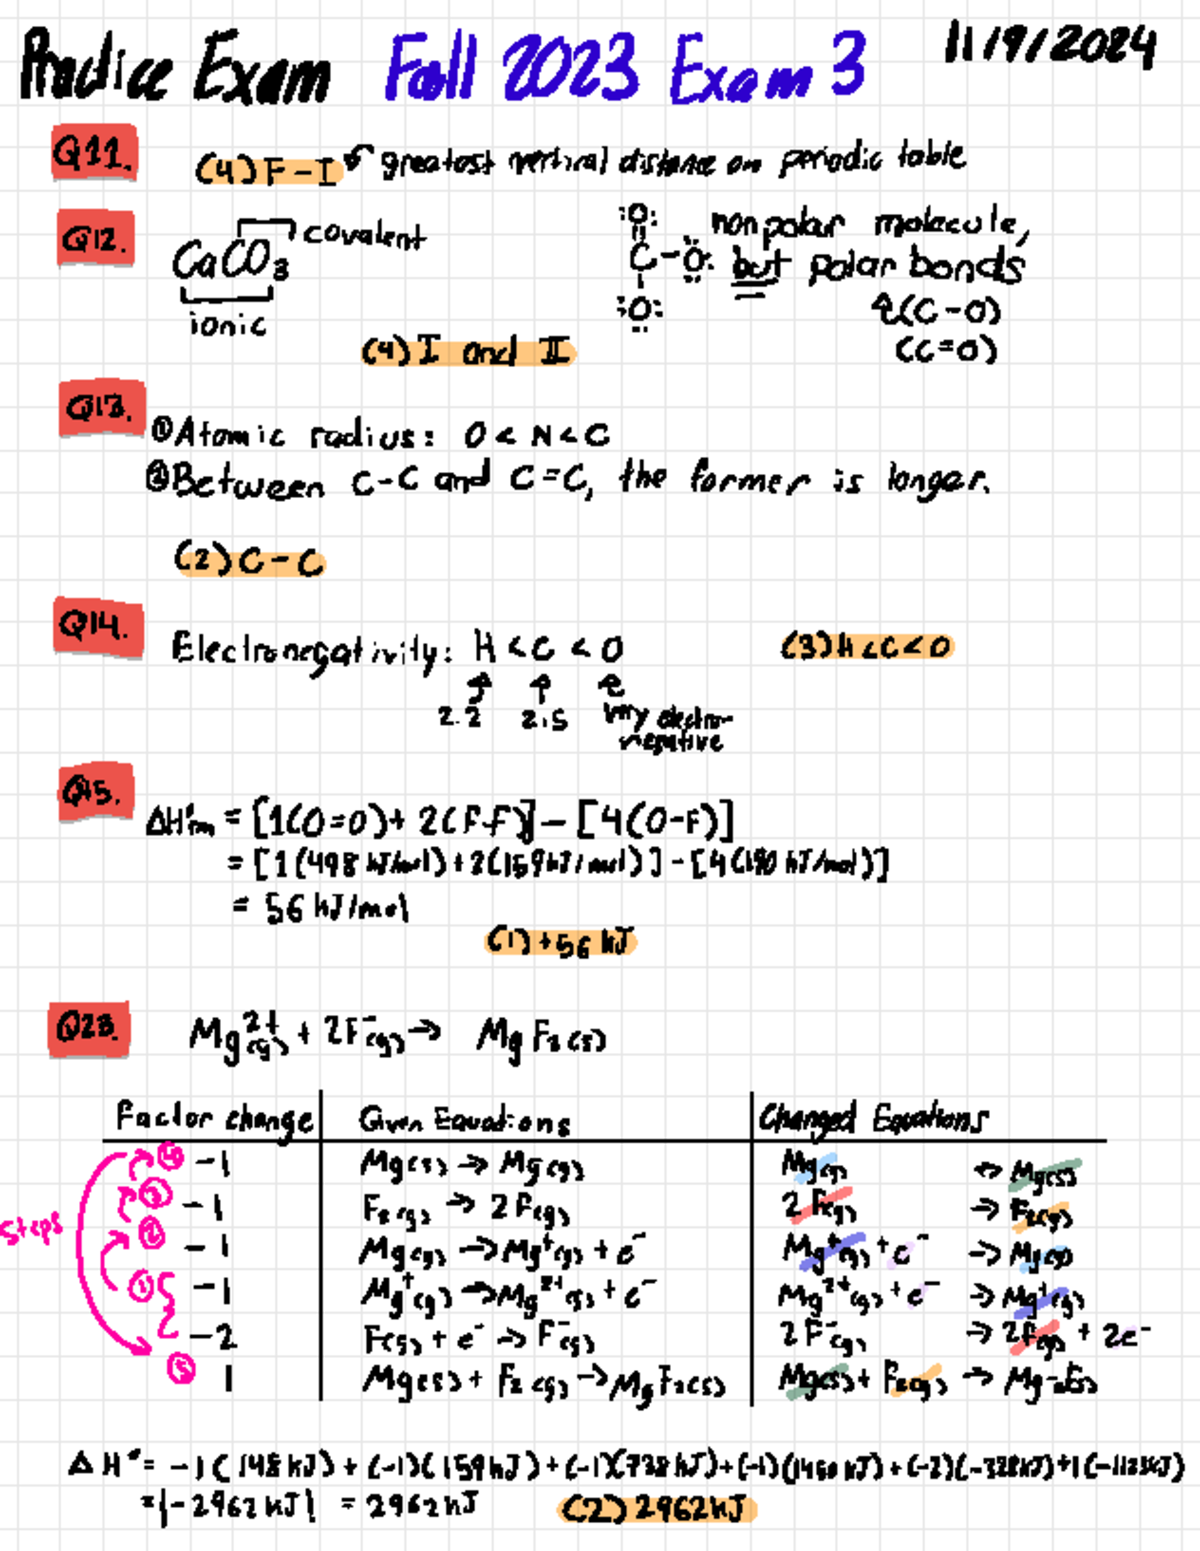 Practice Exam Fall 2023 Exam 3 11/9/2024
Q11. (4) F-I ↶ greatest vertical distance on periodic table
Q12. CaCO₃ covalent
ionic
:O:
||
C-Ö:
|
:O:
nonpolar molecule,
but polar bonds
↑(C-O)
(C=O)
(4) I and II
Q13. ①Atomic radius: O < N < C
②Between C-C and C=C, the former is longer.
(2) C-C
Q14. Electronegativity: H < C < O (3) H < C < O
↑ ↑ ↑
2.2 2.5 very electro-
negative
Q15. ΔH°rxn = [1(O=O) + 2(F-F)] - [4(O-F)]
= [1(498 kJ/mol) + 2(159 kJ/mol)] - [4(190 kJ/mol)]
= 56 kJ/mol
(1) +56 kJ
Q23. Mg²⁺(g) + 2F⁻(g) → MgF₂(s)
Factor change | Given Equations | Changed Equations
④ -1 | Mg(s) → Mg(g) | Mg(g) → Mg(s)
③ -1 | F₂(g) → 2F(g) | 2F(g) → F₂(g)
steps ② -1 | Mg(g) → Mg⁺(g) + e⁻ | Mg⁺(g) + e⁻ → Mg(g)
① -1 | Mg⁺(g) → Mg²⁺(g) + e⁻ | Mg²⁺(g) + e⁻ → Mg⁺(g)
-2 | F(g) + e⁻ → F⁻(g) | 2F⁻(g) → 2F(g) + 2e⁻
⑤ 1 | Mg(s) + F₂(g) → MgF₂(s) | Mg(s) + F₂(g) → MgF₂(s)
ΔH° = -1(148 kJ) + (-1)(159 kJ) + (-1)(738 kJ) + (-1)(1450 kJ) + (-2)(-328 kJ) + 1(-1123 kJ)
= |-2962 kJ| = 2962 kJ (2) 2962 kJ